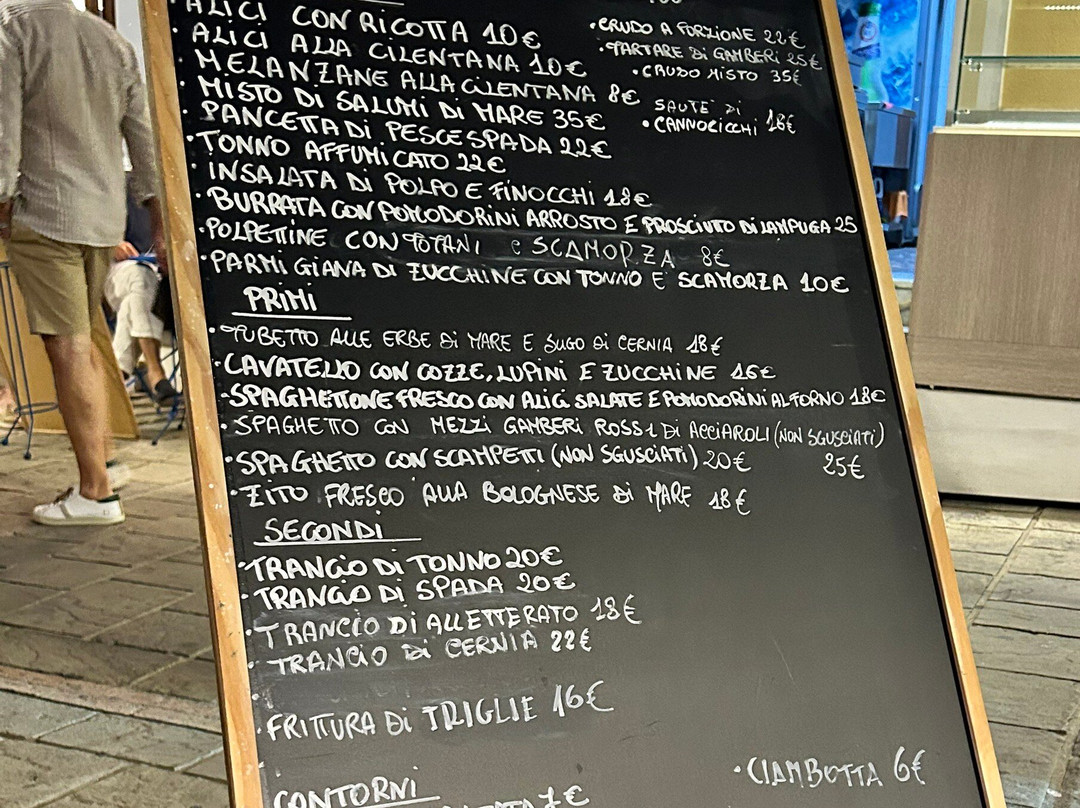 ALICI CON RICOTTA 10€
• ALICI ALLA CILENTANA 10€
• MELANZANE ALLA CILENTANA 8€
• MISTO DI SALUMI DI MARE 35€
• PANCETTA DI PESCE SPADA 22€
• TONNO AFFUMICATO 22€
• INSALATA DI POLPO E FINOCCHI 18€
• BURRATA CON POMODORINI ARROSTO E PROSCIUTO DI LAMPUGA 25
• POLPETTINE CON TOTANI e SCAMORZA 8€
• PARMIGIANA DI ZUCCHINE CON TONNO E SCAMORZA 10€
• CRUDO A PORZIONE 22€
• TARTARE DI GAMBERI 25€
• CRUDO MISTO 35€
SAUTE' DI
• CANNOCICCHI 18€
PRIMI
• TUBETTO ALLE ERBE DI MARE E SUGO DI CERNIA 18€
• CAVATELLO CON COZZE, LUPINI E ZUCCHINE 16€
• SPAGHETTONE FRESCO CON ALICI SALATE E POMODORINI AL FORNO 18€
• SPAGHETTO CON MEZZI GAMBERI ROSSI DI ACCIAROLI (NON SGUSCIATI) 25€
• SPAGHETTO CON SCAMPETTI (NON SGUSCIATI) 20€
• ZITO FRESCO ALLA BOLOGNESE DI MARE 18€
SECONDI
• TRANCIO DI TONNO 20€
• TRANCIO DI SPADA 20€
• TRANCIO DI ALLETTERATO 18€
• TRANCIO DI CERNIA 22€
• FRITTURA DI TRIGLIE 16€
CONTORNI
• CIAMBOTTA 6€